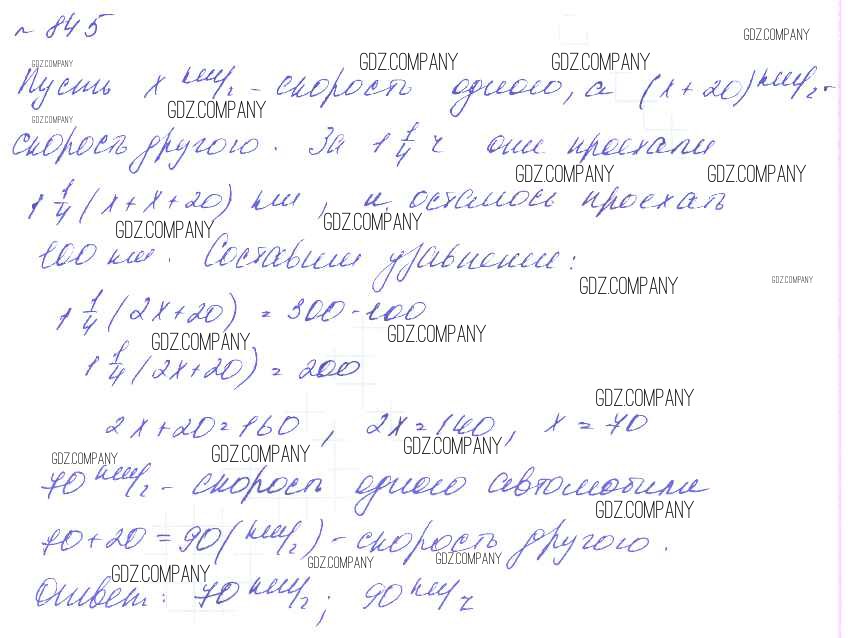 № 845
GDZ.COMPANY
GDZ.COMPANY GDZ.COMPANY GDZ.COMPANY
Пусть x км/ч - скорость одного, а (x+20) км/ч -
GDZ.COMPANY
GDZ.COMPANY
скорость другого. За 1 1/4 ч они проехали
GDZ.COMPANY GDZ.COMPANY
1 1/4 (x+x+20) км, и осталось проехать
GDZ.COMPANY GDZ.COMPANY
100 км. Составим уравнение:
GDZ.COMPANY GDZ.COMPANY
1 1/4 (2x+20) = 300-100
GDZ.COMPANY GDZ.COMPANY
1 1/4 (2x+20) = 200
GDZ.COMPANY
2x+20=160, 2x=140, x=70
GDZ.COMPANY GDZ.COMPANY GDZ.COMPANY
70 км/ч - скорость одного автомобиля
GDZ.COMPANY
70+20=90 (км/ч) - скорость другого.
GDZ.COMPANY GDZ.COMPANY GDZ.COMPANY
Ответ: 70 км/ч; 90 км/ч